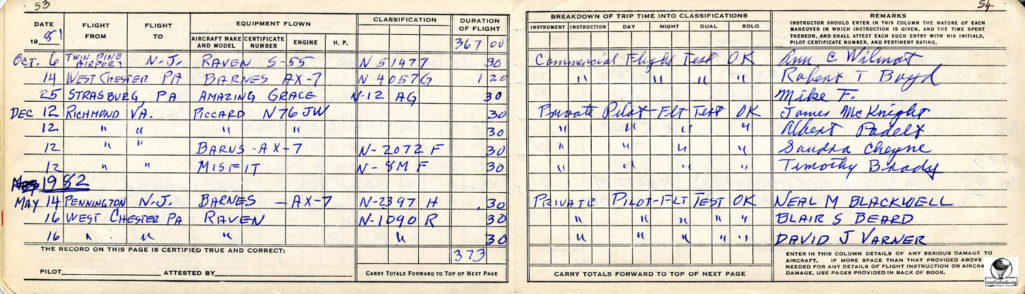 53
DATE
19 81
FLIGHT FROM
FLIGHT TO
EQUIPMENT FLOWN
AIRCRAFT MAKE AND MODEL
CERTIFICATE NUMBER
ENGINE
H. P.
CLASSIFICATION
DURATION OF FLIGHT
367 00
OCT. 6 TWIN PINE AIRPORT N-J. RAVEN S-55 N 51477 30
14 WEST CHESTER PA BARNES AX-7 N 4057G 1 20
25 STRASBURG PA AMAZING GRACE N-12 AG 30
DEC 12 RICHMOND VA. PICCARD N76JW 30
12 " " " " 30
12 " " BARNS-AX-7 N-2072 F 30
12 " " MISFIT N-8MF 30
1982
MAY 14 PENNINGTON N-J. BARNES -AX-7 N-2397 H .30
16 WEST CHESTER PA RAVEN N-1090 R 30
16 " " " " 30
THE RECORD ON THIS PAGE IS CERTIFIED TRUE AND CORRECT:
373
PILOT ATTESTED BY
CARRY TOTALS FORWARD TO TOP OF NEXT PAGE
54
BREAKDOWN OF TRIP TIME INTO CLASSIFICATIONS
INSTRUMENT INSTRUCTION DAY NIGHT DUAL SOLO
REMARKS
INSTRUCTOR SHOULD ENTER IN THIS COLUMN THE NATURE OF EACH
MANEUVER IN WHICH INSTRUCTION IS GIVEN, AND THE TIME SPENT
THEREON, AND SHALL ATTEST EACH SUCH ENTRY WITH HIS INITIALS,
PILOT CERTIFICATE NUMBER, AND PERTINENT RATING.
Commercial Flight Test OK Ann C Wilmot
" " " " Robert T Boyd
Mike F.
Private Pilot-Flt Test OK James McKnight
" " " " Albert Padelt
" " " " Sandra Cheyne
" " " " Timothy Brady
PRIVATE PILOT-FLT TEST OK NEAL M BLACKWELL
" " " " " BLAIR S BEARD
" " " " " DAVID J VARNER
CARRY TOTALS FORWARD TO TOP OF NEXT PAGE
ENTER IN THIS COLUMN DETAILS OF ANY SERIOUS DAMAGE TO
AIRCRAFT. IF MORE SPACE THAN THAT PROVIDED ABOVE
NEEDED FOR ANY DETAILS OF FLIGHT INSTRUCTION OR AIRCRA
DAMAGE, USE PAGES PROVIDED IN BACK OF BOOK.